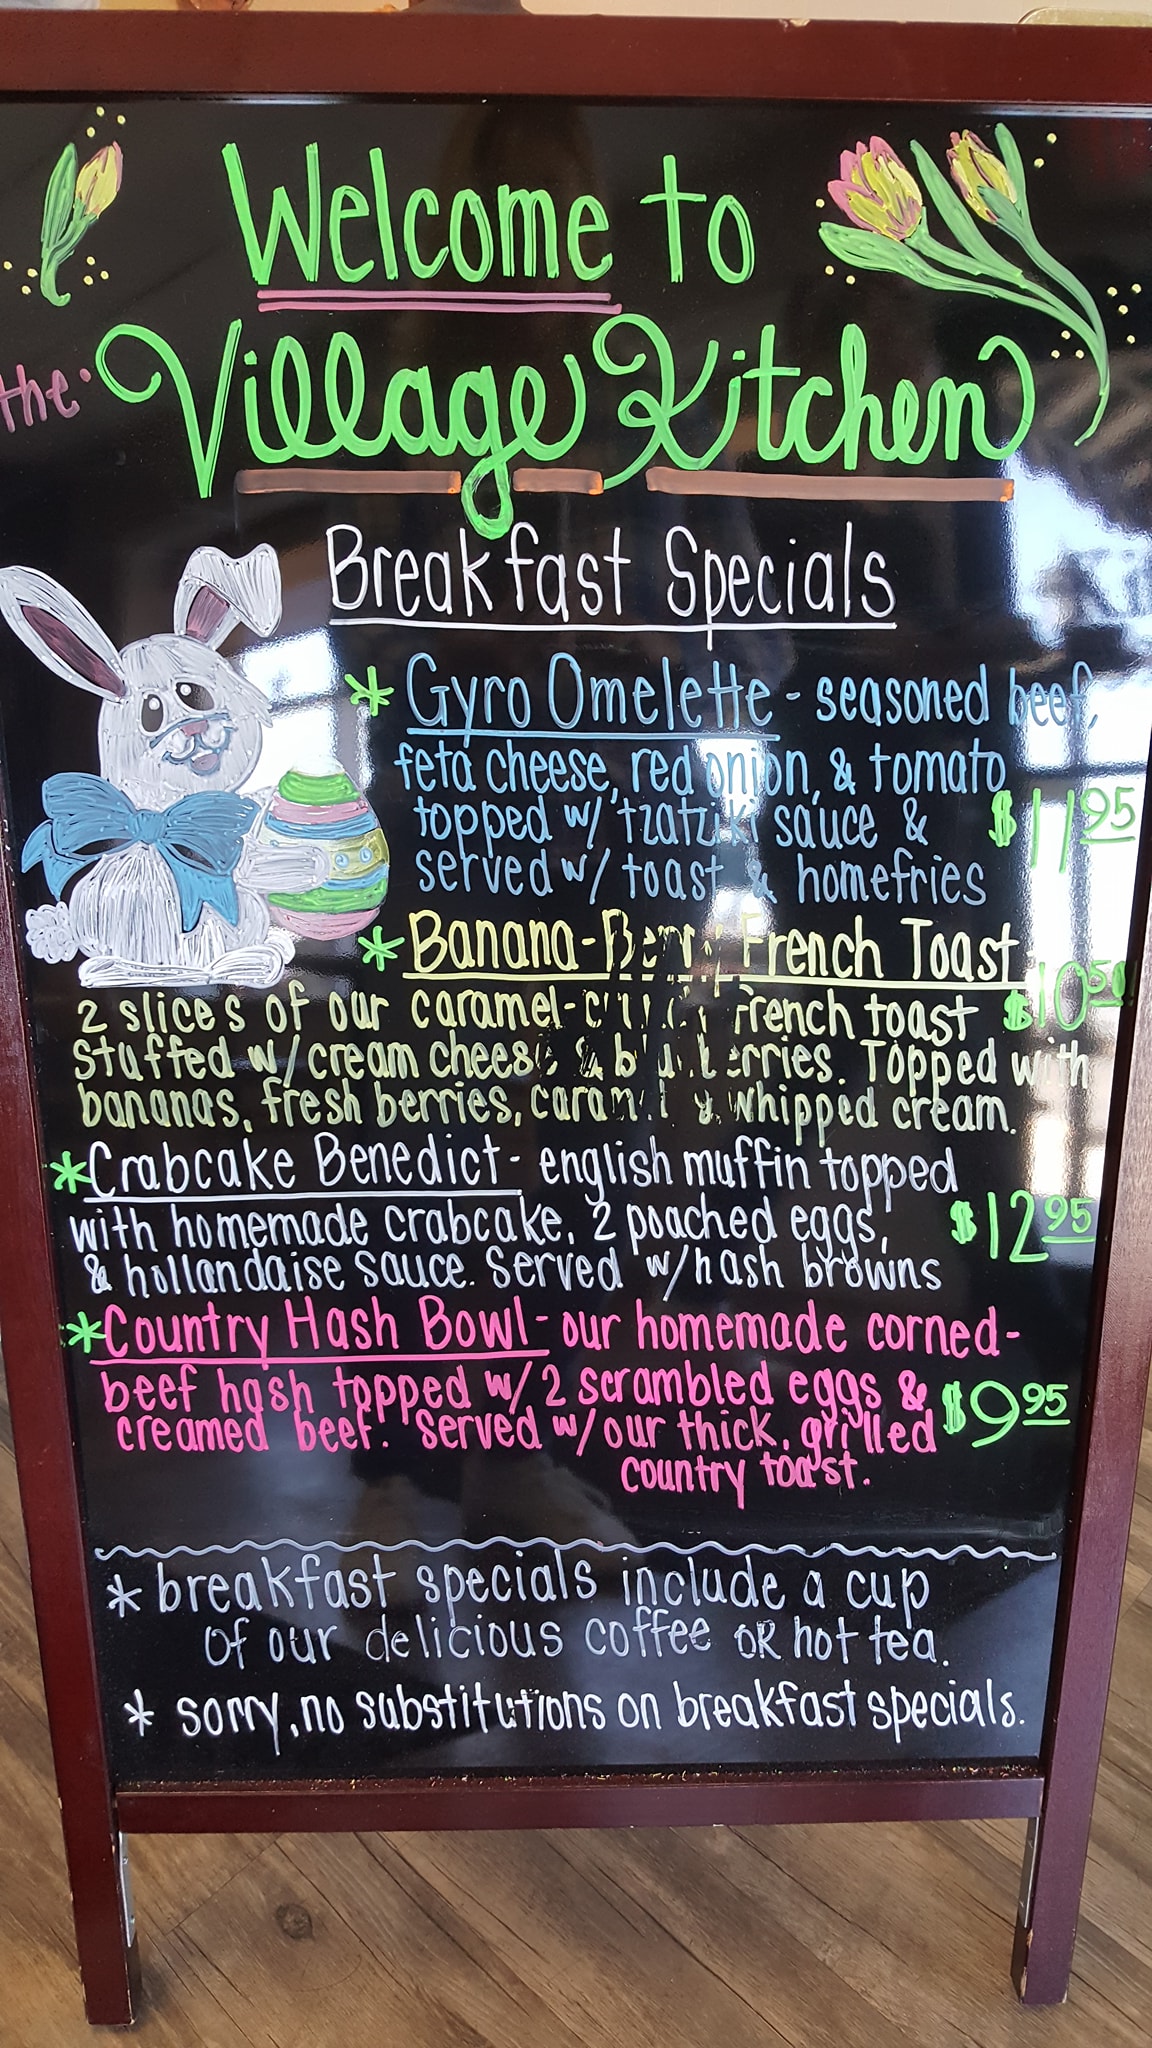 Welcome to
the Village Kitchen
Breakfast Specials
* Gyro Omelette - seasoned beef,
feta cheese, red onion, & tomato
topped w/ tzatziki sauce &
served w/ toast & homefries
$11.95
* Banana-Berry French Toast
2 slices of our caramel- French toast
$10.50
stuffed w/ cream cheese & blueberries. Topped with
bananas, fresh berries, caramel & whipped cream.
*Crabcake Benedict - english muffin topped
with homemade crabcake, 2 poached eggs,
$12.95
& hollandaise sauce. Served w/hash browns
*Country Hash Bowl - our homemade corned-
beef hash topped w/ 2 scrambled eggs &
$9.95
creamed beef. Served w/our thick, grilled
country toast.
* breakfast specials include a cup
of our delicious coffee OR hot tea.
* sorry, no substitutions on breakfast specials.